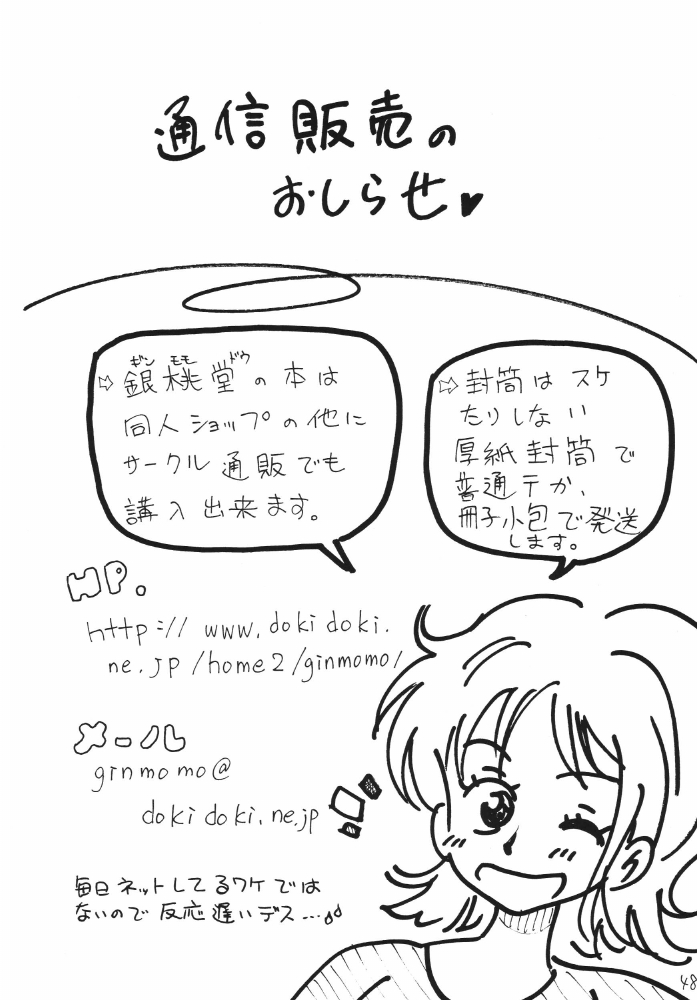 通信販売の
おしらせ♥
⇨銀桃堂の本は
ギン モモ ドウ
同人ショップの他に
サークル通販でも
講入出来ます。
⇨封筒はスケ
たりしない
厚紙封筒で
普通〒か、
冊子小包で発送
します。
HP.
http://www.dokidoki.
ne.jp/home2/ginmomo/
メール
ginmomo@
dokidoki.ne.jp
毎日ネットしてるワケでは
ないので反応遅いデス…
48